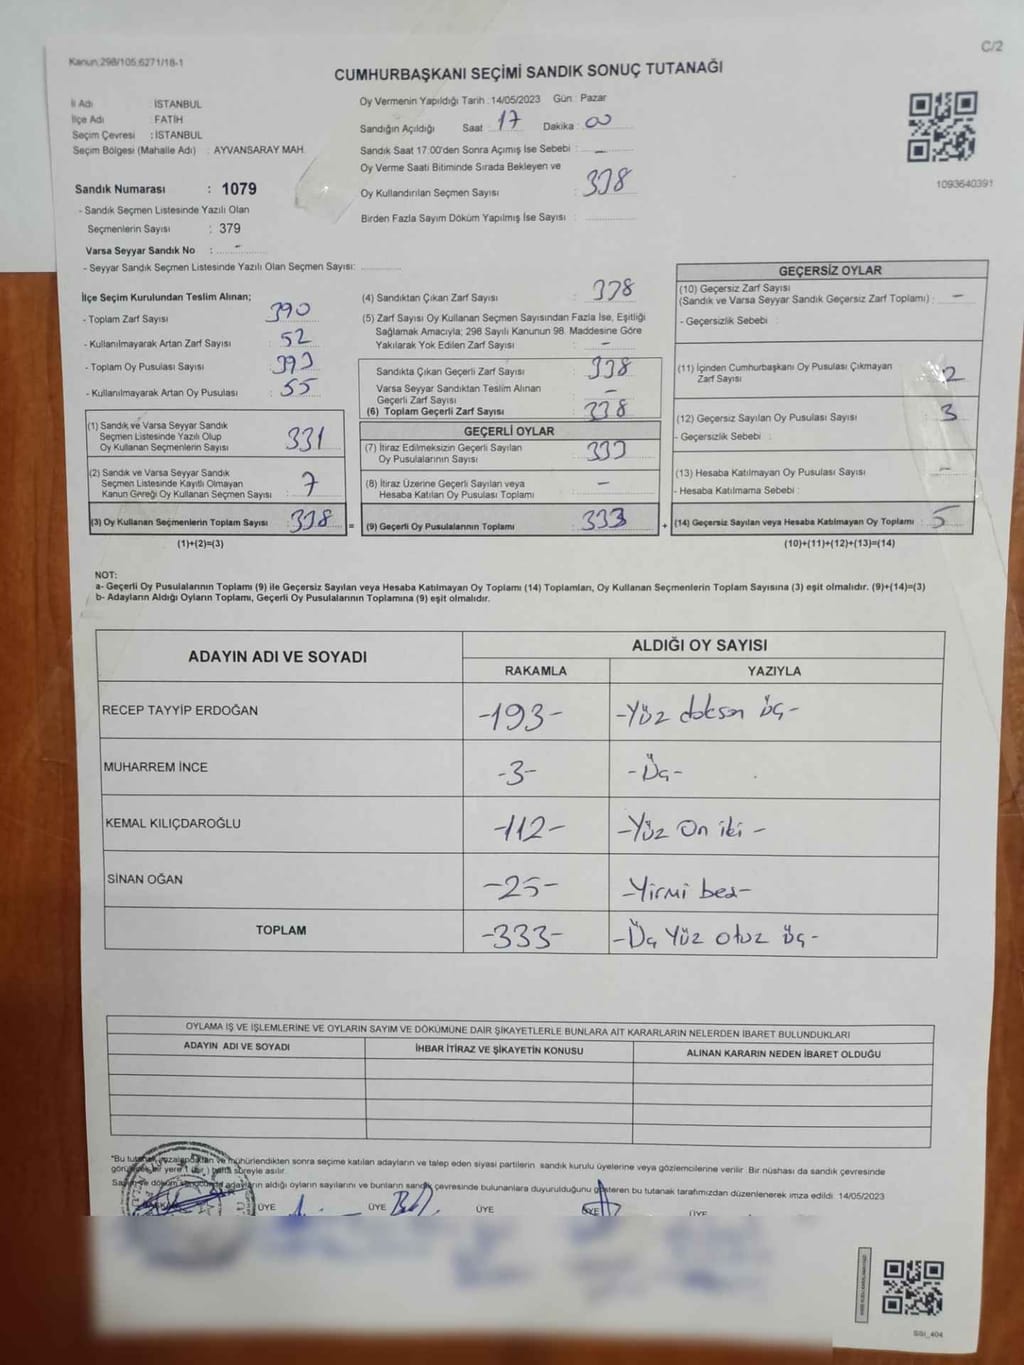 C/2
Kanun:298/105;6271/18-1
CUMHURBAŞKANI SEÇİMİ SANDIK SONUÇ TUTANAĞI
İl Adı : İSTANBUL
İlçe Adı : FATİH
Seçim Çevresi : İSTANBUL
Seçim Bölgesi (Mahalle Adı) : AYVANSARAY MAH.
Sandık Numarası : 1079
- Sandık Seçmen Listesinde Yazılı Olan
Seçmenlerin Sayısı : 379
Varsa Seyyar Sandık No : -
- Seyyar Sandık Seçmen Listesinde Yazılı Olan Seçmen Sayısı:
Oy Vermenin Yapıldığı Tarih :14/05/2023 Gün : Pazar
Sandığın Açıldığı Saat : 17 Dakika : 00
Sandık Saat 17:00'den Sonra Açımış İse Sebebi : -
Oy Verme Saati Bitiminde Sırada Bekleyen ve
Oy Kullandırılan Seçmen Sayısı : 338
Birden Fazla Sayım Döküm Yapılmış İse Sayısı :
1093640391
İlçe Seçim Kurulundan Teslim Alınan;
- Toplam Zarf Sayısı : 390
- Kullanılmayarak Artan Zarf Sayısı : 52
- Toplam Oy Pusulası Sayısı : 393
- Kullanılmayarak Artan Oy Pusulası : 55
(1) Sandık ve Varsa Seyyar Sandık
Seçmen Listesinde Yazılı Olup
Oy Kullanan Seçmenlerin Sayısı : 331
(2) Sandık ve Varsa Seyyar Sandık
Seçmen Listesinde Kayıtlı Olmayan
Kanun Gereği Oy Kullanan Seçmen Sayısı : 7
(3) Oy Kullanan Seçmenlerin Toplam Sayısı : 338 =
(1)+(2)=(3)
(4) Sandıktan Çıkan Zarf Sayısı : 338
(5) Zarf Sayısı Oy Kullanan Seçmen Sayısından Fazla İse, Eşitliği
Sağlamak Amacıyla; 298 Sayılı Kanunun 98. Maddesine Göre
Yakılarak Yok Edilen Zarf Sayısı : -
Sandıkta Çıkan Geçerli Zarf Sayısı : 338
Varsa Seyyar Sandıktan Teslim Alınan
Geçerli Zarf Sayısı : -
(6) Toplam Geçerli Zarf Sayısı : 338
GEÇERLİ OYLAR
(7) İtiraz Edilmeksizin Geçerli Sayılan
Oy Pusulalarının Sayısı : 333
(8) İtiraz Üzerine Geçerli Sayılan veya
Hesaba Katılan Oy Pusulası Toplamı : -
(9) Geçerli Oy Pusulalarının Toplamı : 333 +
GEÇERSİZ OYLAR
(10) Geçersiz Zarf Sayısı
(Sandık ve Varsa Seyyar Sandık Geçersiz Zarf Toplamı) : -
- Geçersizlik Sebebi :
(11) İçinden Cumhurbaşkanı Oy Pusulası Çıkmayan
Zarf Sayısı : 2
(12) Geçersiz Sayılan Oy Pusulası Sayısı : 3
- Geçersizlik Sebebi :
(13) Hesaba Katılmayan Oy Pusulası Sayısı : -
- Hesaba Katılmama Sebebi :
(14) Geçersiz Sayılan veya Hesaba Katılmayan Oy Toplamı : 5
(10)+(11)+(12)+(13)=(14)
NOT:
a- Geçerli Oy Pusulalarının Toplamı (9) ile Geçersiz Sayılan veya Hesaba Katılmayan Oy Toplamı (14) Toplamları, Oy Kullanan Seçmenlerin Toplam Sayısına (3) eşit olmalıdır. (9)+(14)=(3)
b- Adayların Aldığı Oyların Toplamı, Geçerli Oy Pusulalarının Toplamına (9) eşit olmalıdır.
ADAYIN ADI VE SOYADI ALDIĞI OY SAYISI
RAKAMLA YAZIYLA
RECEP TAYYİP ERDOĞAN -193- -Yüz doksan üç-
MUHARREM İNCE -3- -Üç-
KEMAL KILIÇDAROĞLU -112- -Yüz On iki-
SİNAN OĞAN -25- -Yirmi beş-
TOPLAM -333- -Üç Yüz otuz üç-
OYLAMA İŞ VE İŞLEMLERİNE VE OYLARIN SAYIM VE DÖKÜMÜNE DAİR ŞİKAYETLERLE BUNLARA AİT KARARLARIN NELERDEN İBARET BULUNDUKLARI
ADAYIN ADI VE SOYADI İHBAR İTİRAZ VE ŞİKAYETİN KONUSU ALINAN KARARIN NEDEN İBARET OLDUĞU
*Bu tutanak imzalandıktan ve mühürlendikten sonra seçime katılan adayların ve talep eden siyasi partilerin sandık kurulu üyelerine veya gözlemcilerine verilir. Bir nüshası da sandık çevresinde
görülecek bir yere 1 (bir) hafta süreyle asılır.
Sayım ve döküm sonucunda adayların aldığı oyların sayılarını ve bunların sandık çevresinde bulunanlara duyurulduğunu gösteren bu tutanak tarafımızdan düzenlenerek imza edildi. 14/05/2023
ÜYE ÜYE ÜYE ÜYE ÜYE
SSI_404